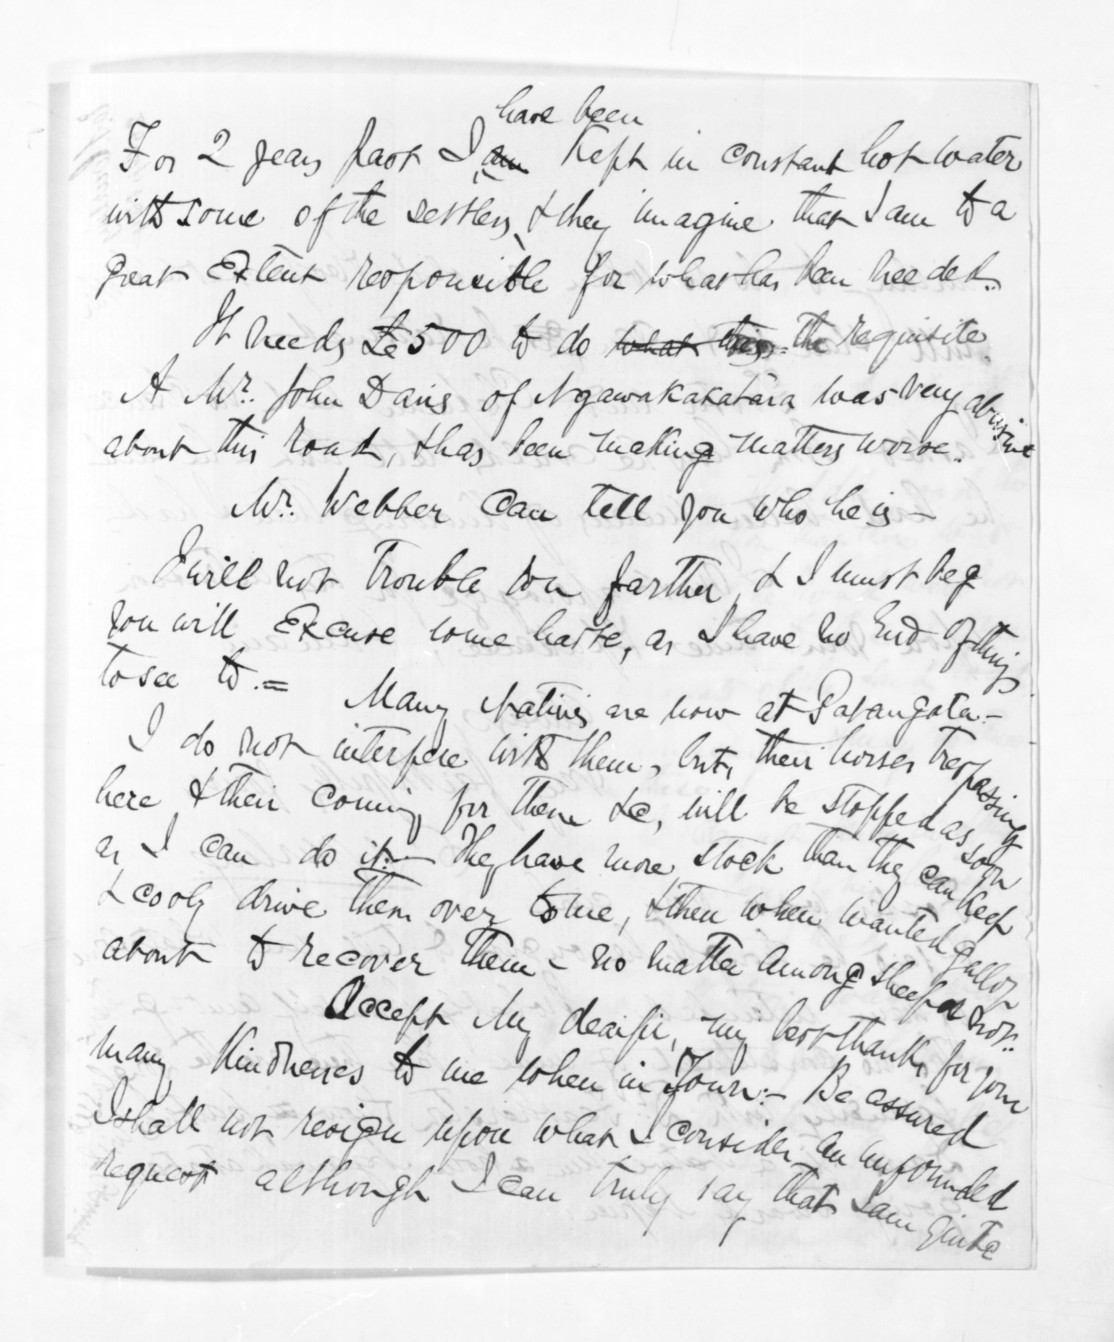 have been
For 2 years past I am kept in constant hot water
with some of the settlers, & they imagine that I am to a
great Extent responsible for what has been needed.
It needs £500 to do what this the requisite
A Mr. John Davis of Ngawakakatara was very abusive
about this road, & has been making matters worse.
Mr. Webber can tell you who he is —
I will not trouble you farther, & I must beg
you will Excuse some haste, as I have no End of things
to see to. = Many Natives are now at Patangata —
I do not interfere with them, but, their horses trespassing
here & their coming for them &c, will be stopped as soon
as I can do it. — They have more stock than they can keep
& cooly drive them over to me, & then when wanted gallop
about to recover them — no matter among sheep or not.
Accept My dear Sir, my best thanks for your
many Kindnesses to me when in Town. — Be assured
I shall not resign upon what I consider an unfounded
request although I can truly say that I am quite